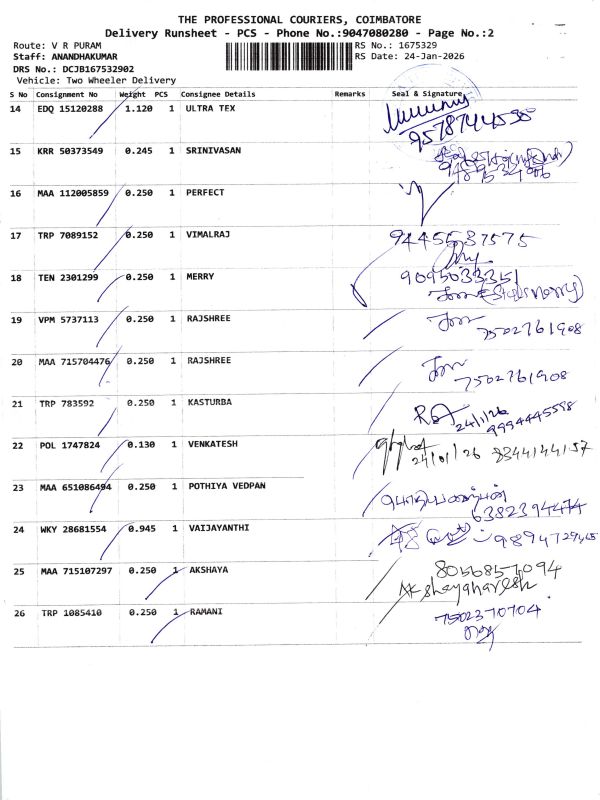 THE PROFESSIONAL COURIERS, COIMBATORE
Delivery Runsheet - PCS - Phone No.:9047080280 - Page No.:2
Route: V R PURAM
RS No.: 1675329
Staff: ANANDHAKUMAR
RS Date: 24-Jan-2026
DRS No.: DCJB167532902
Vehicle: Two Wheeler Delivery
S No Consignment No Weight PCS Consignee Details Remarks Seal & Signature
14 EDQ 15120288 1.120 1 ULTRA TEX
15 KRR 50373549 0.245 1 SRINIVASAN
16 MAA 112005859 0.250 1 PERFECT
17 TRP 7089152 0.250 1 VIMALRAJ 9445537575
18 TEN 2301299 0.250 1 MERRY 9095033351
19 VPM 5737113 0.250 1 RAJSHREE 7502761908
20 MAA 715704476 0.250 1 RAJSHREE 7502761908
21 TRP 783592 0.250 1 KASTURBA 24/1/26 9994445598
22 POL 1747824 0.130 1 VENKATESH 24/01/26 8344144157
23 MAA 651086494 0.250 1 POTHIYA VEDPAN 6382394474
24 WKY 28681554 0.945 1 VAIJAYANTHI
25 MAA 715107297 0.250 1 AKSHAYA 8056857094
Akshayaharesh
26 TRP 1085410 0.250 1 RAMANI 7502370704